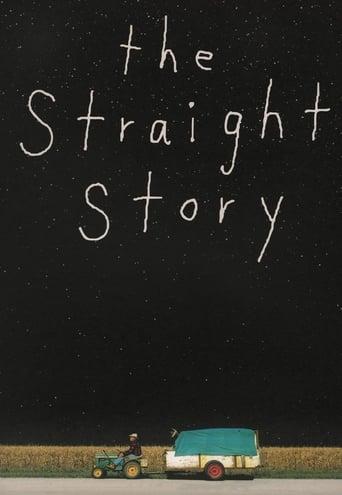 the
Straight
Story